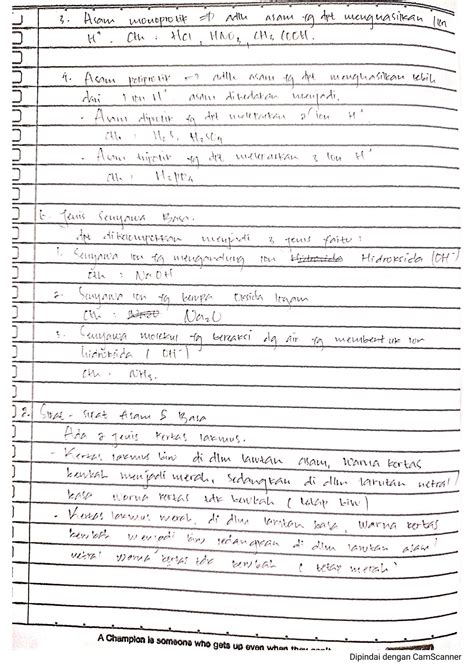 3. Asam monoprotik => adlh asam yg dpt menghasilkan 1 ion
H⁺. Cth : HCl, HNO₃, CH₃COOH.
4. Asam poliprotik → adlh asam yg dpt menghasilkan lebih
dari 1 ion H⁺ asam dibedakan menjadi.
- Asam diprotik yg dpt melepaskan 2 ion H⁺
cth : H₂S, H₂SO₄
- Asam triprotik yg dpt melepaskan 3 ion H⁺
cth : H₃PO₄
Jenis Senyawa Basa.
dpt dikelompokkan menjadi 3 jenis yaitu :
1. Senyawa ion yg mengandung ion Hidroksida (OH⁻)
Cth : NaOH
2. Senyawa ion yg berupa Oksida logam
Cth : Na₂O
3. Senyawa molekul yg bereaksi dg air yg membentuk ion
hidroksida (OH⁻)
Cth. NH₃.
2. Sifat - sifat Asam & Basa
Ada 2 jenis kertas lakmus.
- Kertas lakmus biru di dlm larutan asam, warna kertas
berubah menjadi merah, sedangkan di dlm larutan netral
basa warna kertas tdk berubah (tetap biru)
- Kertas lakmus merah, di dlm larutan basa, warna kertas
berubah menjadi biru sedangkan di dlm larutan asam
netral warna kertas tdk berubah (tetap merah)
A Champion is someone who gets up even when they can't
Dipindai dengan CamScanner